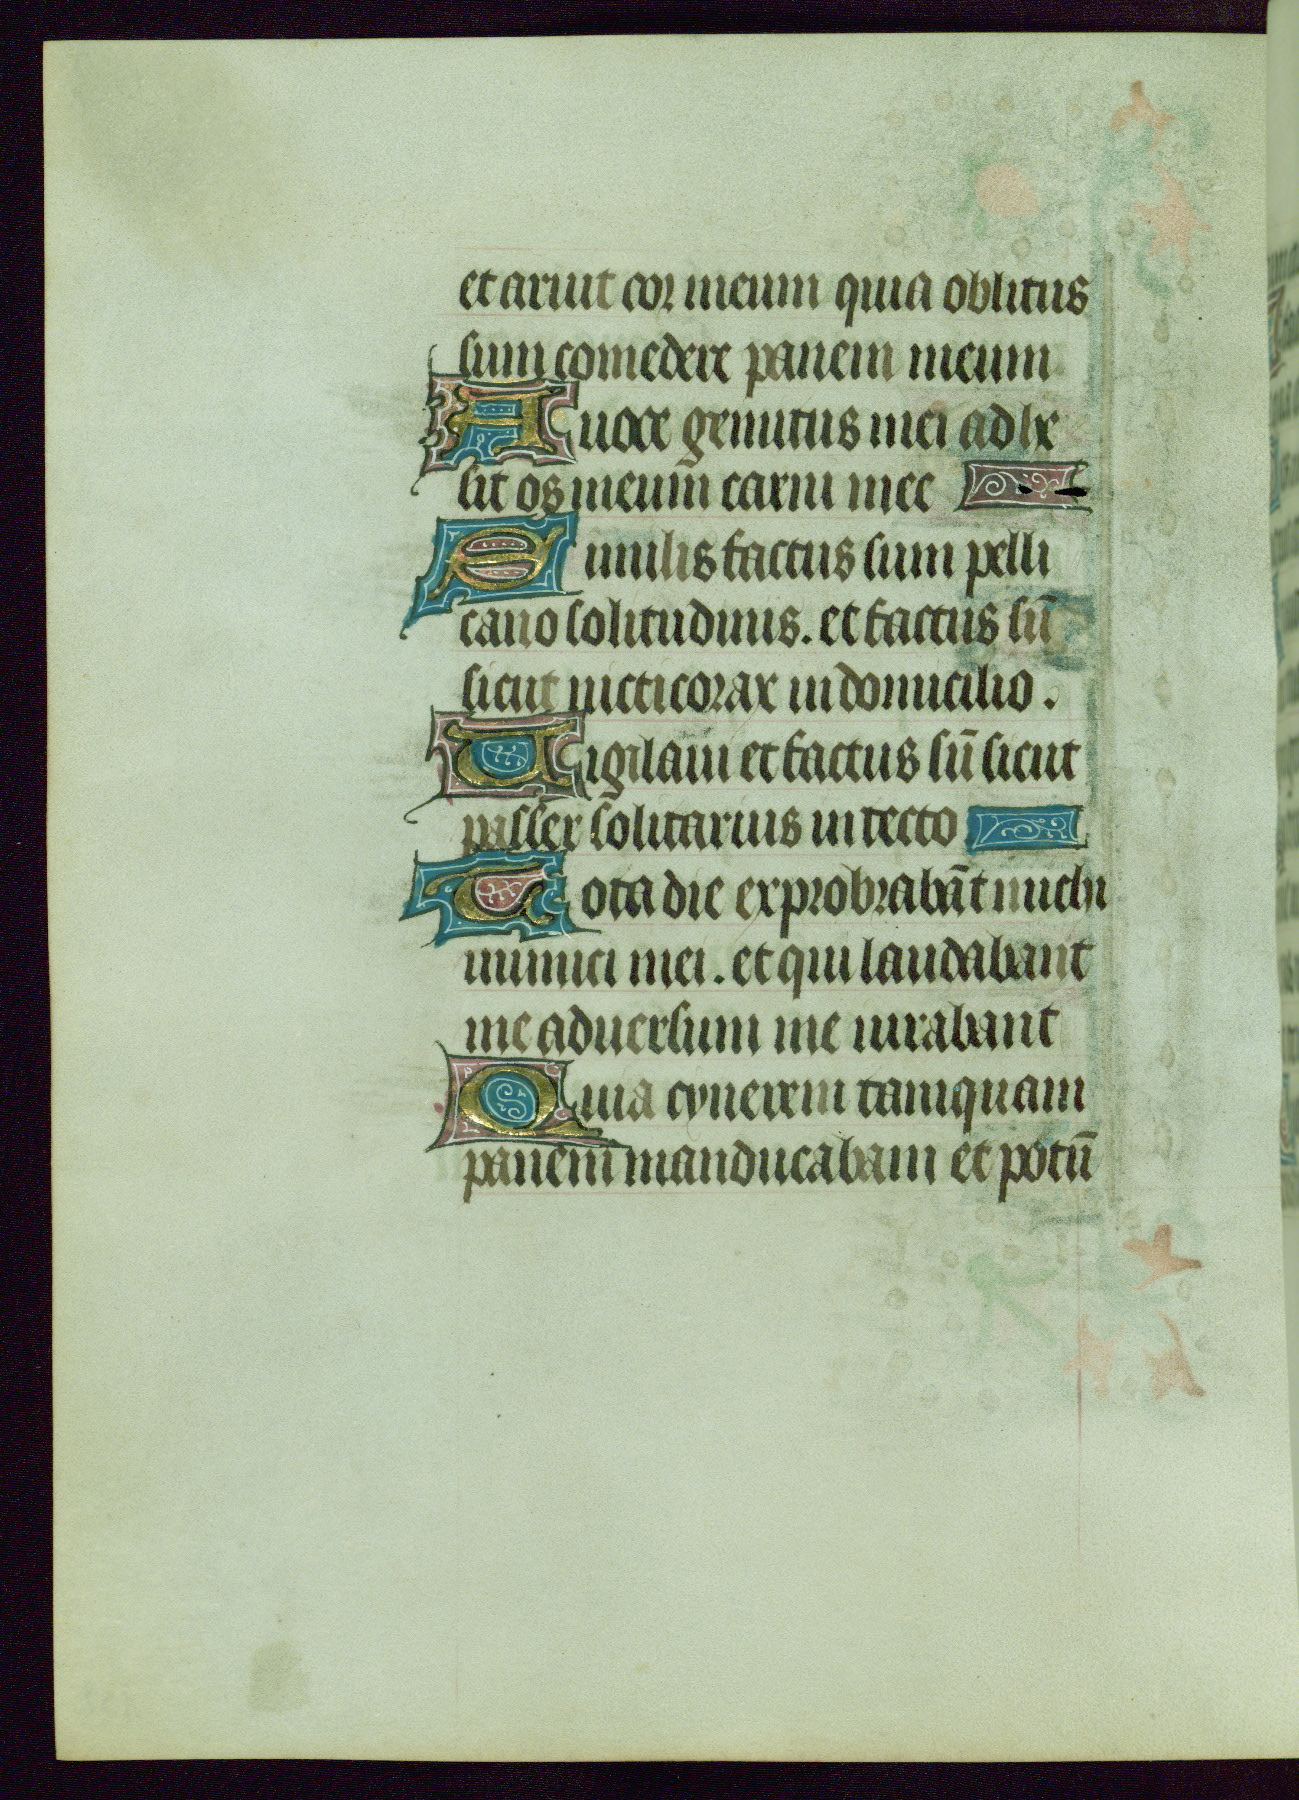 et aruit cor meum quia oblitus
sum comedere panem meum
A uoce gemitus mei adhe
sit os meum carni mee
Similis factus sum pelli
cano solitudinis. et factus sū
sicut nicticorax in domicilio.
Uigilaui et factus sū sicut
passer solitarius in tecto
Tota die exprobrabāt michi
inimici mei. et qui laudabant
me aduersum me iurabant
Quia cynerem tamquam
panem manducabam et potū